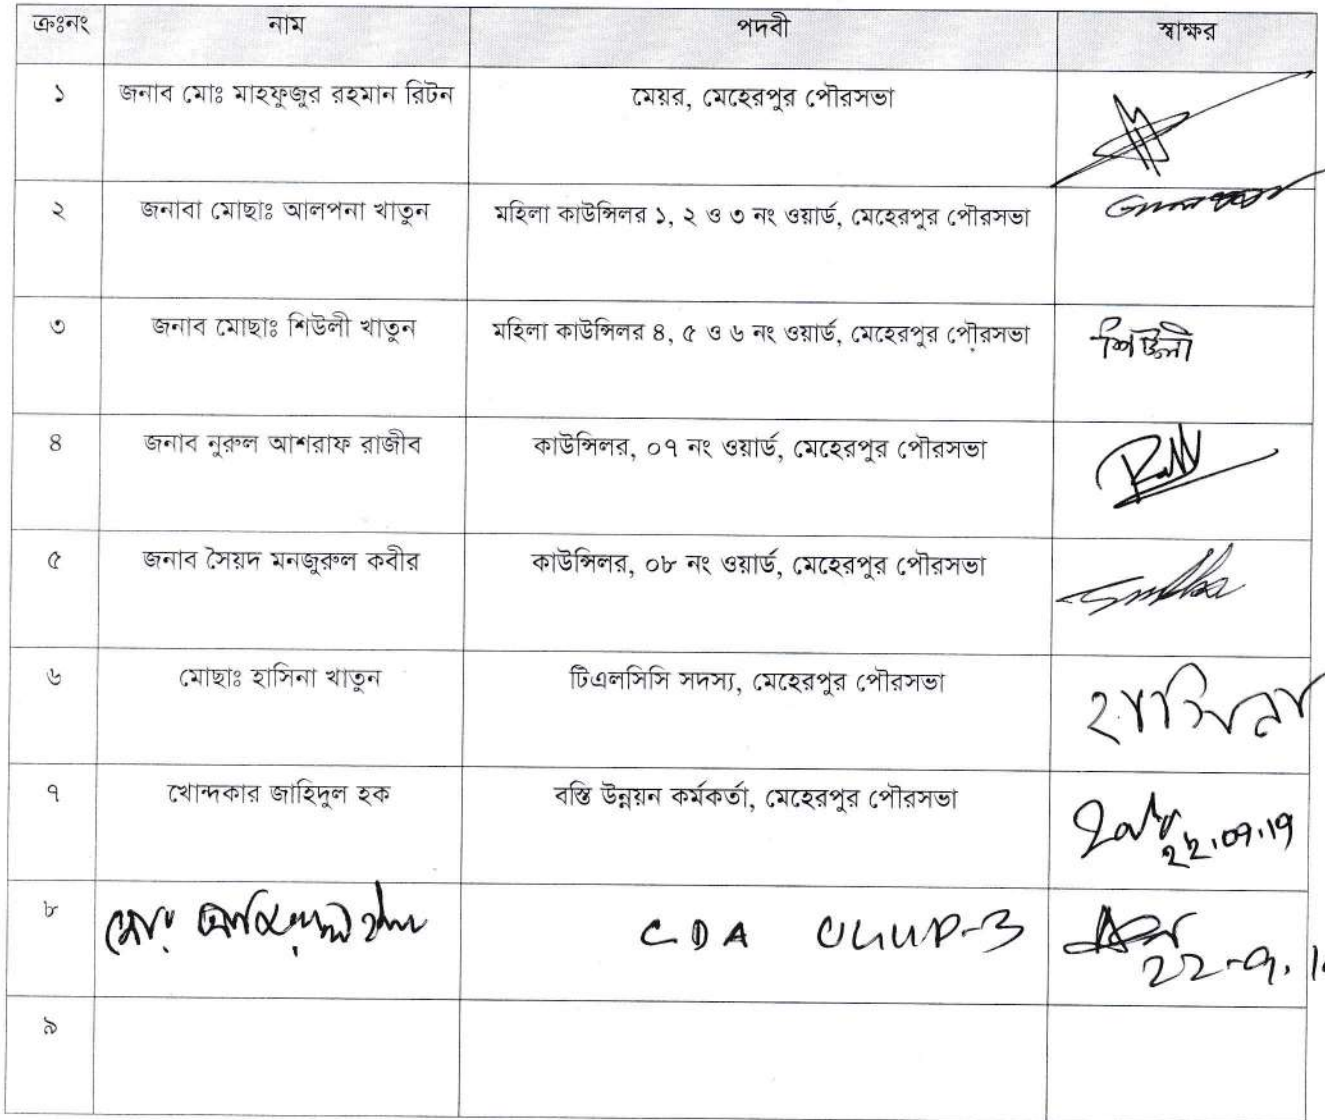 ক্রঃনং নাম পদবী স্বাক্ষর
১ জনাব মোঃ মাহফুজুর রহমান রিটন মেয়র, মেহেরপুর পৌরসভা
২ জনাবা মোছাঃ আলপনা খাতুন মহিলা কাউন্সিলর ১, ২ ও ৩ নং ওয়ার্ড, মেহেরপুর পৌরসভা
৩ জনাব মোছাঃ শিউলী খাতুন মহিলা কাউন্সিলর ৪, ৫ ও ৬ নং ওয়ার্ড, মেহেরপুর পৌরসভা শিউলী
৪ জনাব নুরুল আশরাফ রাজীব কাউন্সিলর, ০৭ নং ওয়ার্ড, মেহেরপুর পৌরসভা
৫ জনাব সৈয়দ মনজুরুল কবীর কাউন্সিলর, ০৮ নং ওয়ার্ড, মেহেরপুর পৌরসভা
৬ মোছাঃ হাসিনা খাতুন টিএলসিসি সদস্য, মেহেরপুর পৌরসভা হাসিনা
৭ খোন্দকার জাহিদুল হক বস্তি উন্নয়ন কর্মকর্তা, মেহেরপুর পৌরসভা
২২.০৭.১৯
৮ মোঃ CDA
৯